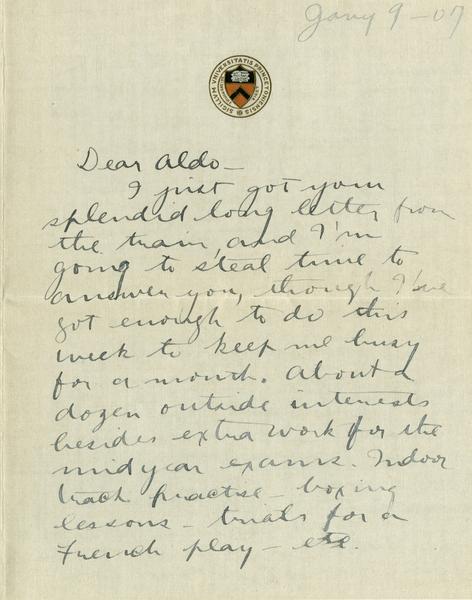 Jany 9 - 07
SIGILLVM VNIVERSITATIS PRINCETONIENSIS
Dear Aldo -
I just got your
splendid long letter from
the train, and I'm
going to steal time to
answer you, though I've
got enough to do this
week to keep me busy
for a month. About a
dozen outside interests
besides extra work for the
midyear exams. Indoor
track practise - boxing
lessons - trials for a
French play - etc.